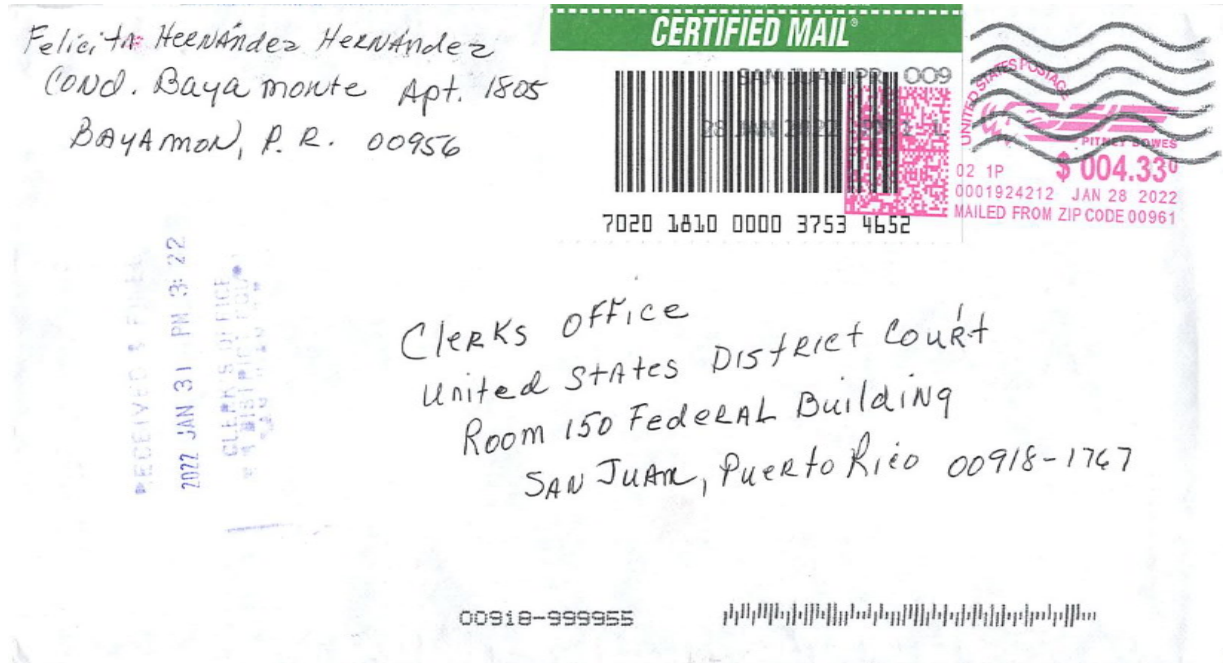 Felicita Hernández Hernández
Cond. Bayamonte Apt. 1805
Bayamon, P. R. 00956
CERTIFIED MAIL®
SAN JUAN PR 009
28 JAN 2022
7020 1810 0000 3753 4652
UNITED STATES POSTAGE
PITNEY BOWES
02 1P $ 004.33⁰
0001924212 JAN 28 2022
MAILED FROM ZIP CODE 00961
RECEIVED & FILED
2022 JAN 31 PM 3: 22
CLERK'S OFFICE
Clerks Office
United States District Court
Room 150 Federal Building
San Juan, Puerto Rico 00918-1767
00918-999955